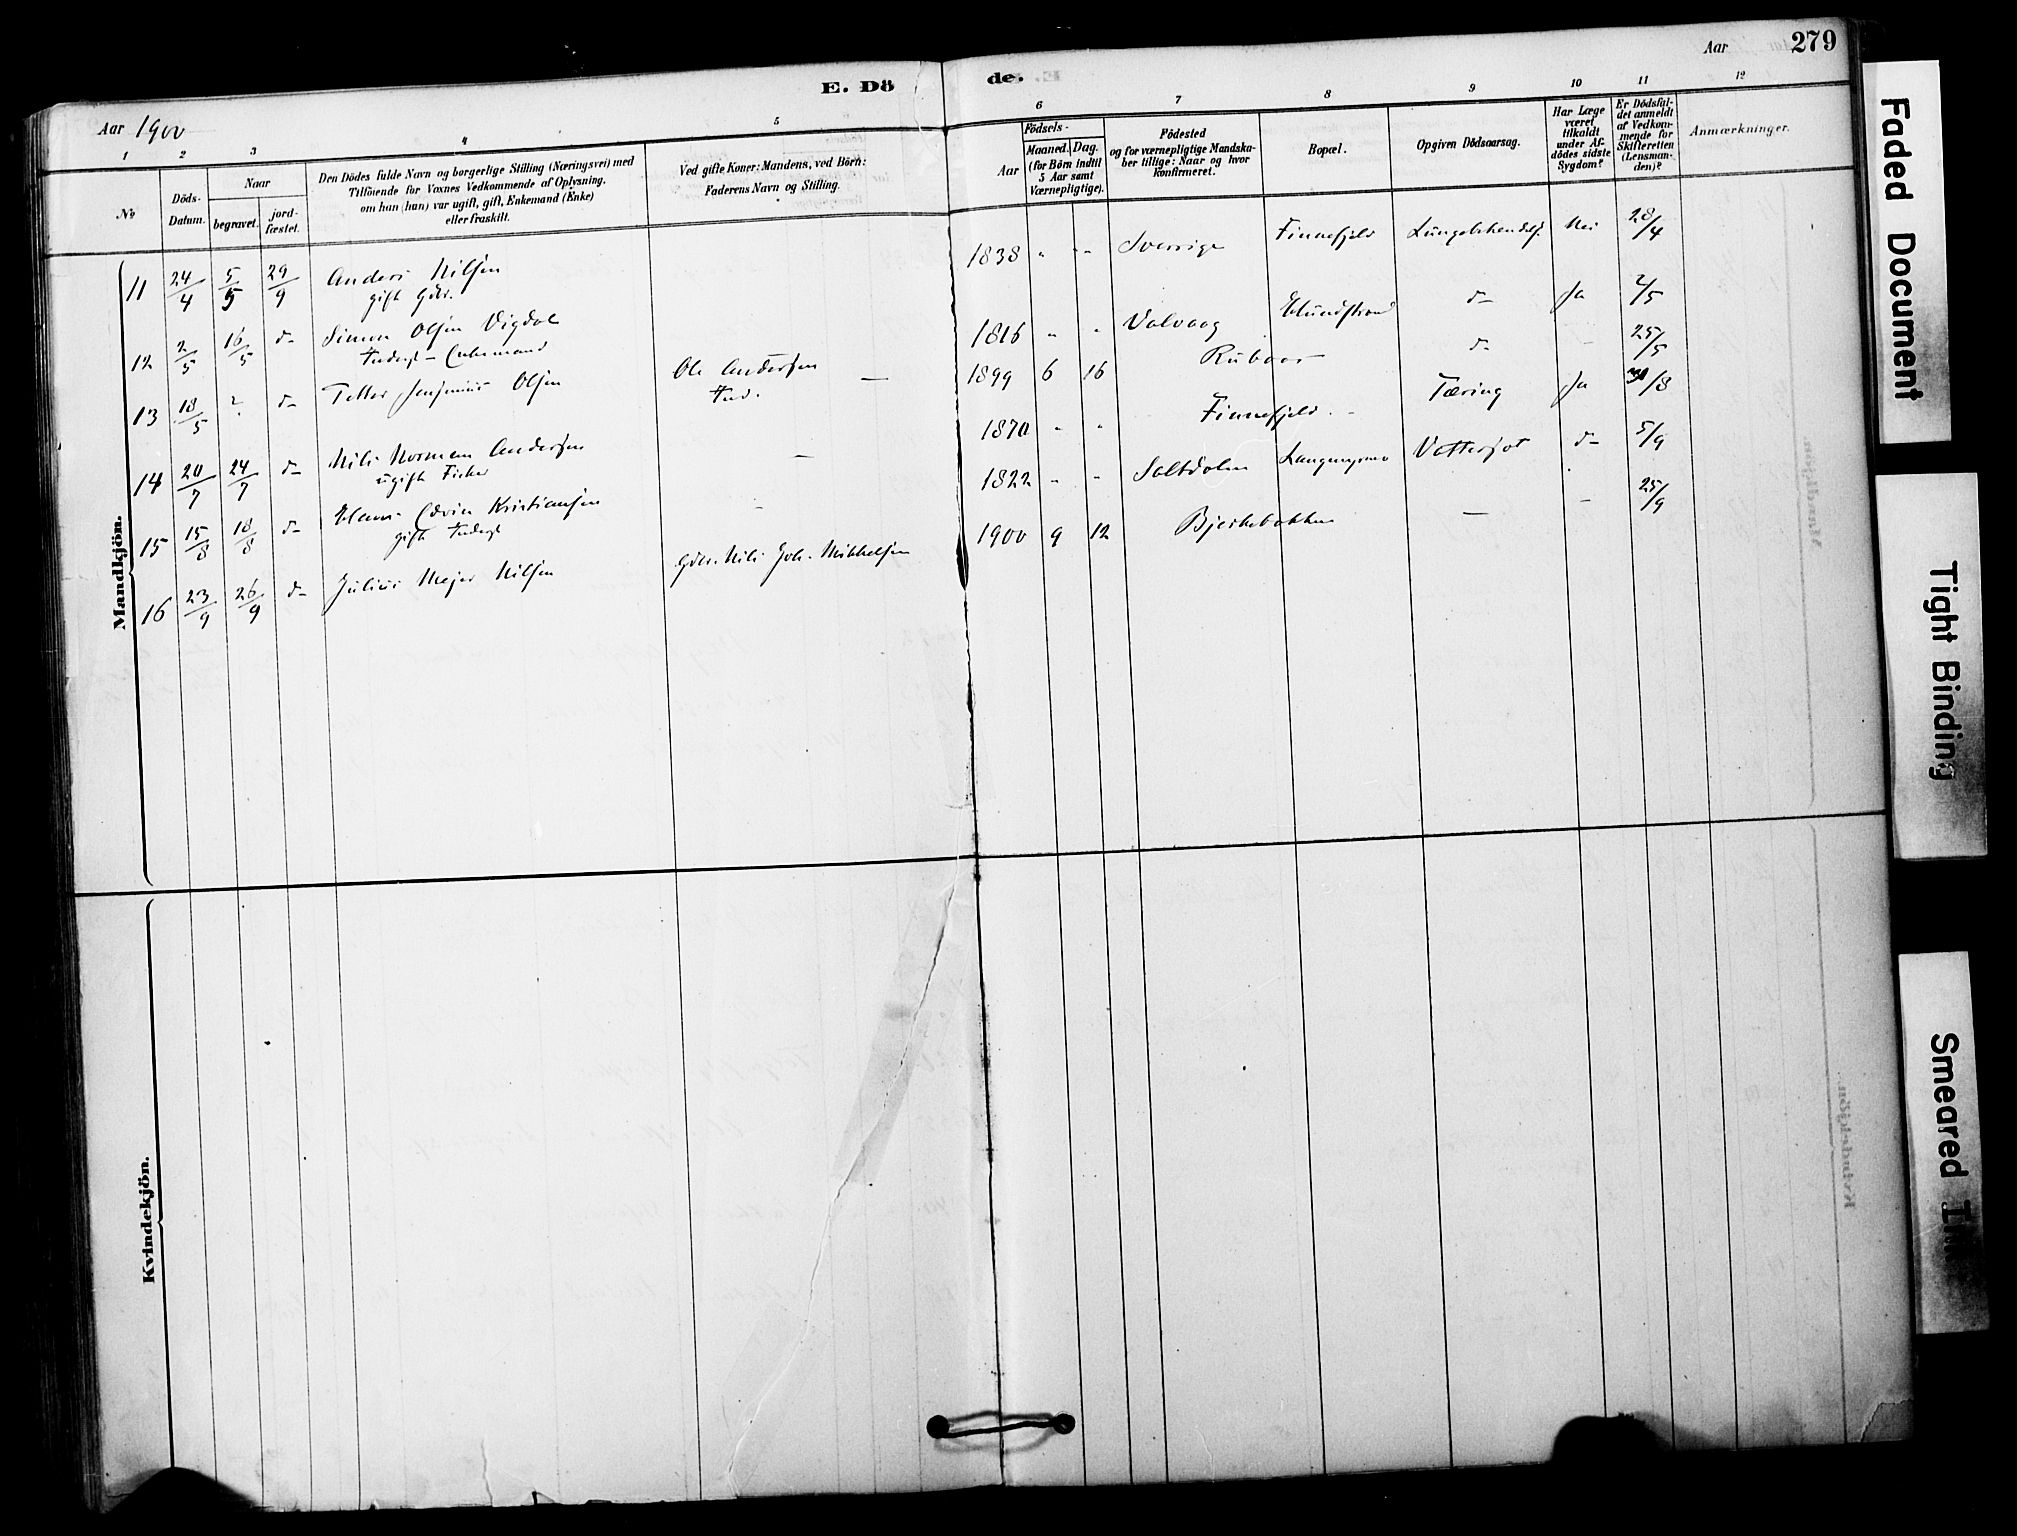 279
E. Dö
de.
Aar 1900
Aar
1 2 3 4 5
6 7 8 9 10 11 12
No
Döds-
Datum.
Naar
begravet.
jord-
fæstet.
Den Dödes fulde Navn og borgerlige Stilling (Næringsvei) med
Tilföiende for Voxnes Vedkommende af Oplysning,
om han (hun) var ugift, gift, Enkemand (Enke)
eller fraskilt.
Ved gifte Koner: Mandens, ved Börn:
Faderens Navn og Stilling.
Födsels-
Aar
Maaned.
Dag.
(for Börn indtil
5 Aar samt
Værnepligtige).
Födested
og for værnepligtige Mandska-
ber tillige: Naar og hvor
konfirmeret.
Bopæl.
Opgiven Dödsaarsag.
Har Læge
været
tilkaldt
under Af-
dödes sidste
Sygdom?
Er Dödsfal-
det anmeldt
af Vedkom-
mende for
Skifteretten
(Lensman-
den)?
Anmærkninger.
Mandkjön.
11 24/4 5/5 29/9 Anders Nilsen 1838 " " Sverrige Finnefjeld Nei 28/4
gift Gdbr.
12 2/5 16/5 d- Simon Olsen Vigdal 1816 " " Valvaag d- Ja 2/5
Inderst - Enkemand
13 18/5 ? d- Olsen Ole Andersen — 1899 6 16 d- - 25/5
Ind.
14 20/7 24/7 d- Nils Norman Andersen — 1870 " " Finnefjeld - Tæring Ja /8
ugift Fisker
15 15/8 18/8 d- Edvin Kristiansen - 1822 " " Saltdalen Vattersot d- 5/9
gift Inderst
16 23/9 26/9 d- Julius Mejer Nilsen Gdbr. Nils Joh. Mikkelsen 1900 9 12 Bjerkebakken — - 25/9
Kvindekjön.
Faded Document
Tight Binding
Smeared Ink